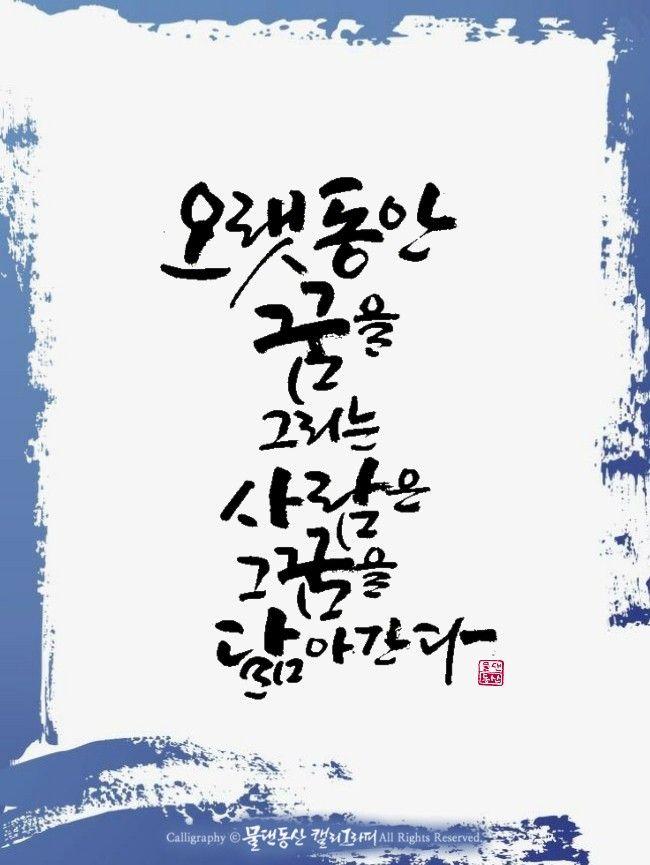 오랫동안
꿈을
그리는
사람은
그 꿈을
닮아간다
물댄
동산
Calligraphy © 물댄동산 캘리그라피 All Rights Reserved.